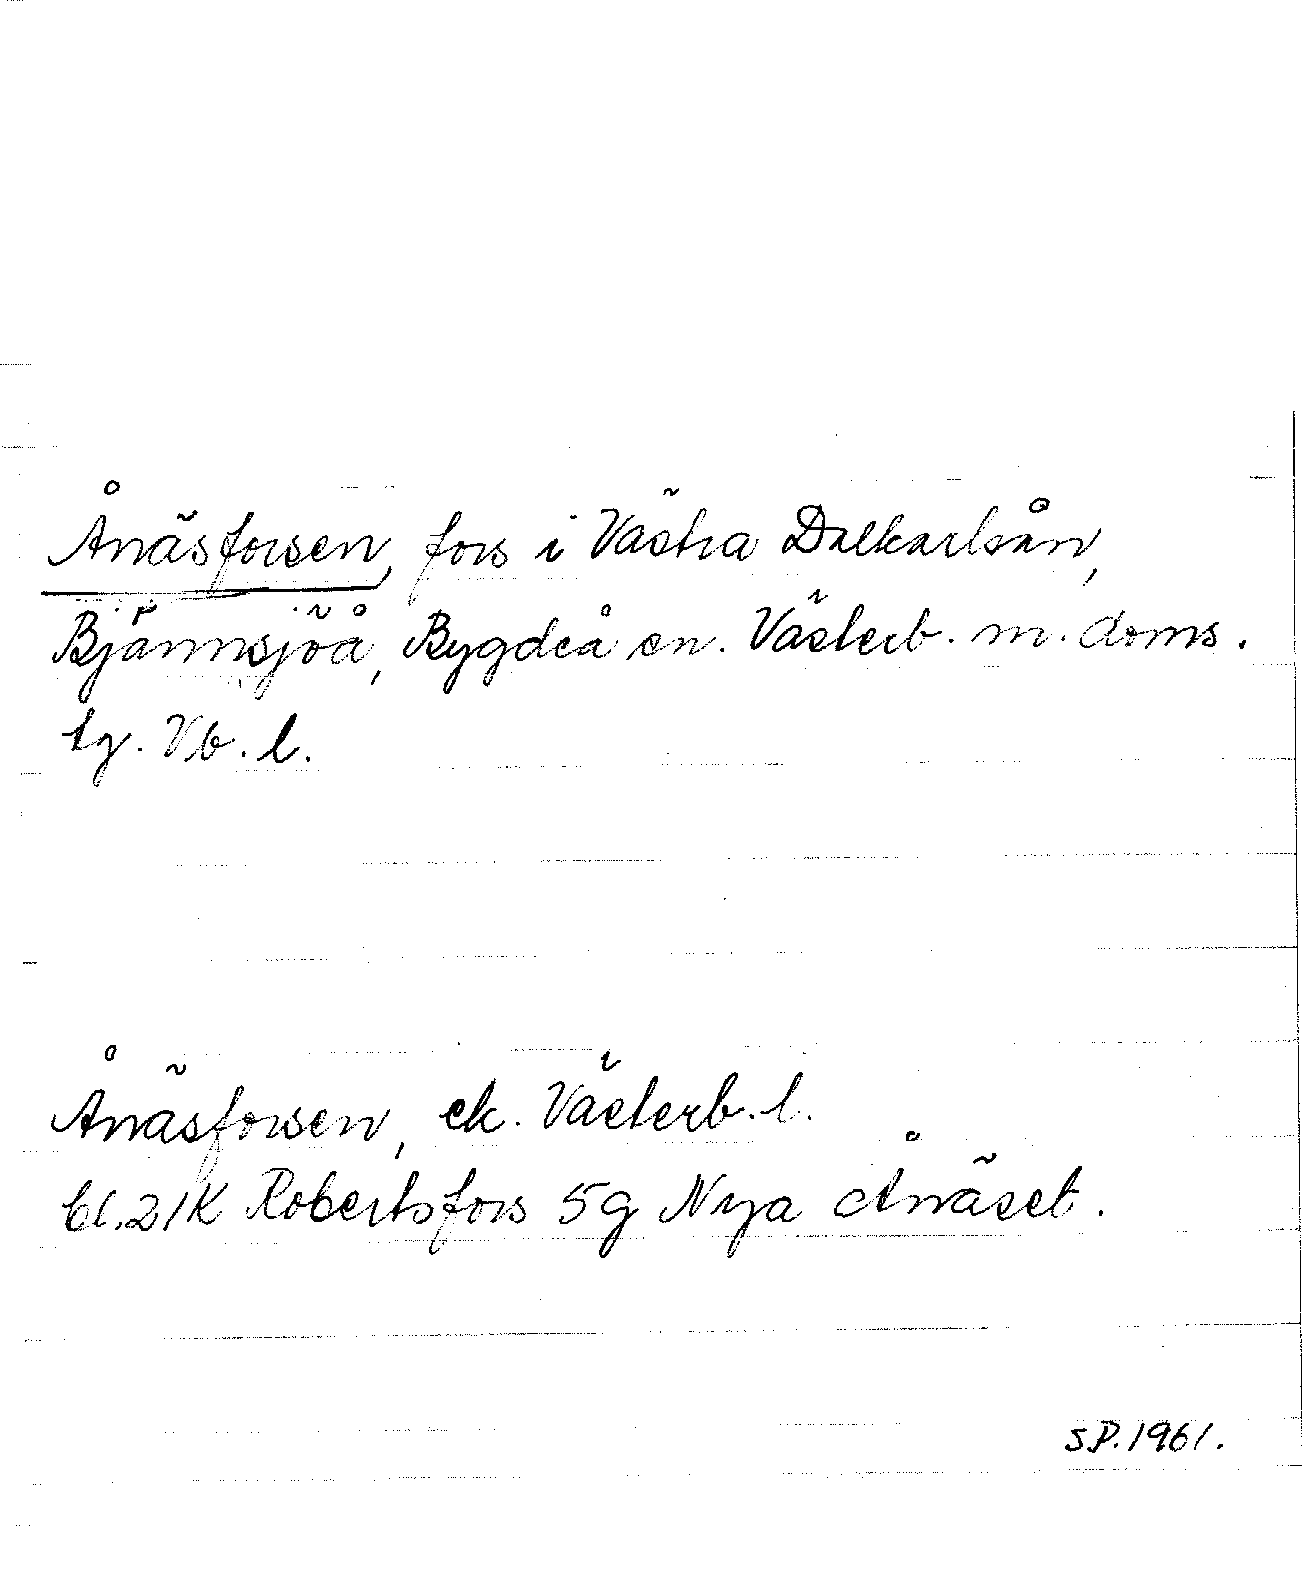 Ånäsforsen, fors i Västra Dalkarlsån,
Bjännsjöå, Bygdeå sn. Västerb. m. doms.
tg. Vb. l.
Ånäsforsen, ek. Västerb. l.
bl. 21K Robertsfors 5g Nya Ånäset.
S.P. 1961.